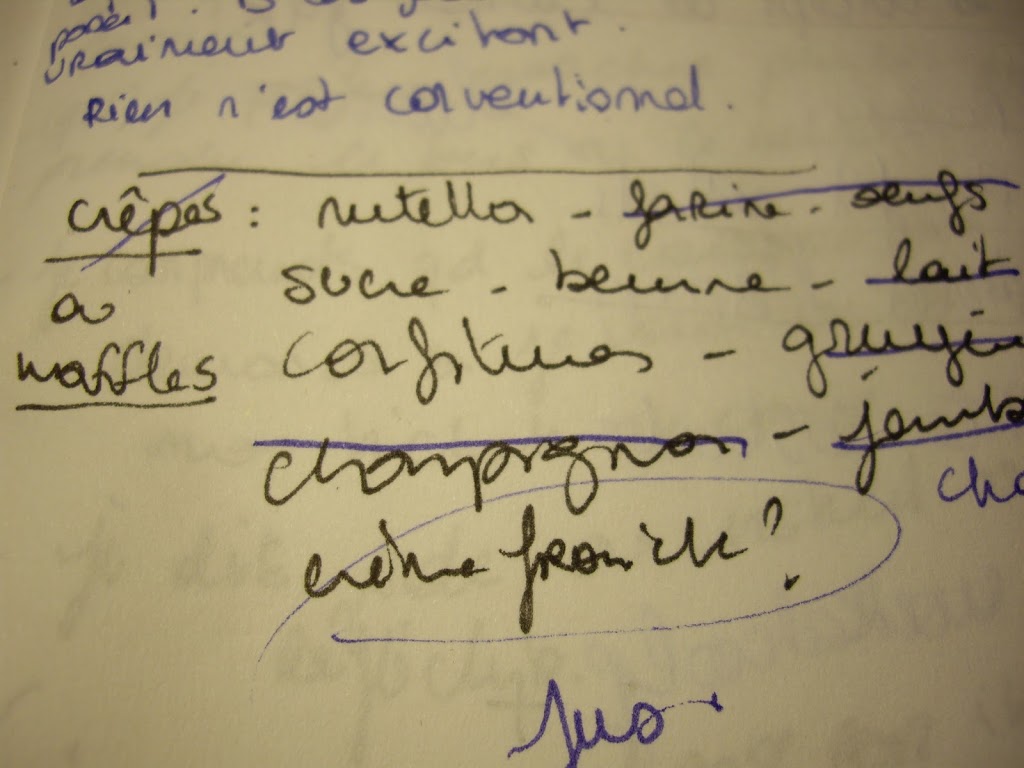 vraiment excitant.
Rien n'est conventionnal.
crêpes : nutella - farine - oeufs
sucre - beurre - lait
ou
waffles confitures - gruyère
champignon - jamb
cha
crème fraiche?